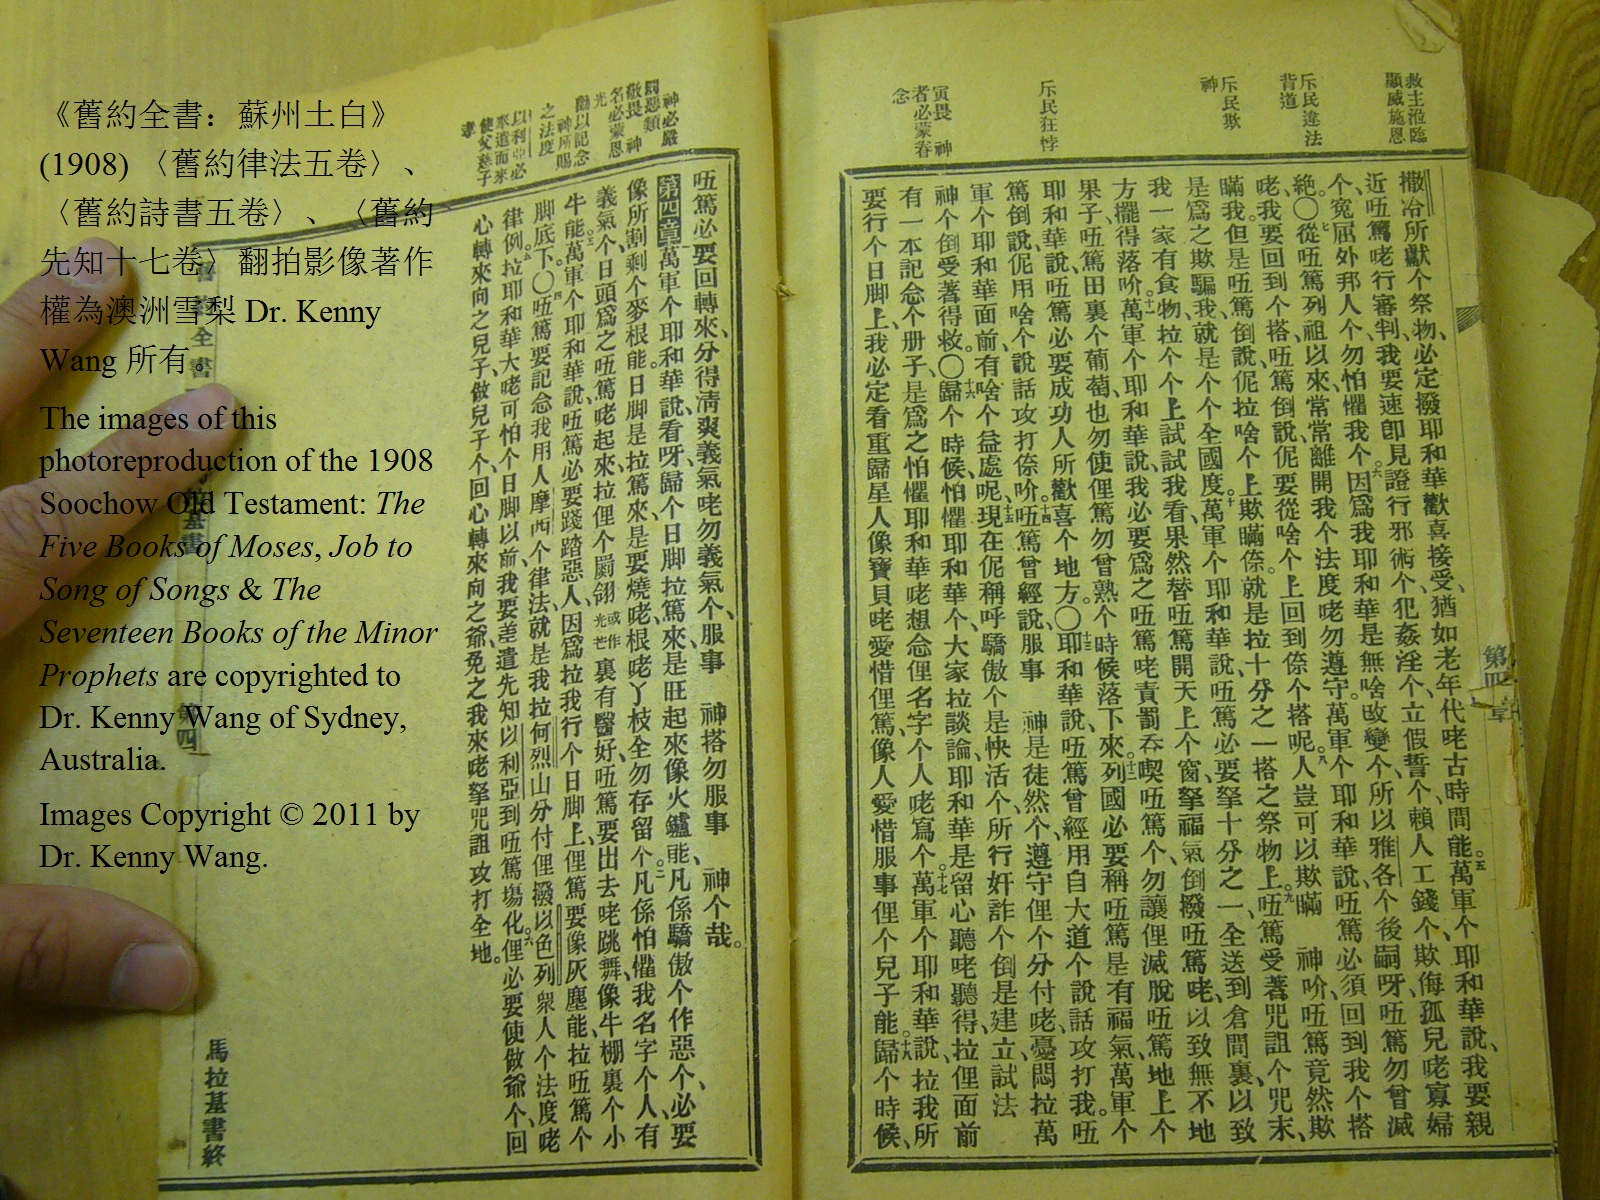 《舊約全書：蘇州土白》
(1908) 〈舊約律法五卷〉、
〈舊約詩書五卷〉、〈舊約
先知十七卷〉翻拍影像著作
權為澳洲雪梨 Dr. Kenny
Wang 所有。
The images of this
photoreproduction of the 1908
Soochow Old Testament: The
Five Books of Moses, Job to
Song of Songs & The
Seventeen Books of the Minor
Prophets are copyrighted to
Dr. Kenny Wang of Sydney,
Australia.
Images Copyright © 2011 by
Dr. Kenny Wang.
救主涖臨
顯威施恩
斥民違法
背道
斥民欺
神
斥民狂悖
寅畏　神
者必蒙眷
念
第四章
撒冷所獻个祭物、必定撥耶和華歡喜接受、猶如老年代咾古時間能。五萬軍个耶和華說、我要親
近㕶篤咾行審判、我要速卽見證行邪術个、犯姦淫个、立假誓个、賴人工錢个、欺侮孤兒咾寡婦
个、寃屈外邦人个、勿怕懼我个。六因爲我耶和華是無啥改變个、所以雅各个後嗣呀、㕶篤勿曾滅
絶。〇七從㕶篤列祖以來、常常離開我个法度咾勿遵守。萬軍个耶和華說、㕶篤必須回到我个搭
咾、我要回到个搭、㕶篤倒說、伲要從啥个上回到倷个搭呢。八人豈可以欺瞞　神吤、㕶篤竟然欺
瞞我、但是㕶篤倒說、伲拉啥个上欺瞞倷。就是拉十分之一搭之祭物上。九㕶篤受著咒詛个咒末、
是爲之欺騙我、就是个个全國度。十萬軍个耶和華說、㕶篤必要拏十分之一、全送到倉間裏、以致
我一家有食物、拉个个上試試我看、果然替㕶篤開天上个窗、拏福氣倒撥㕶篤咾、以致無不地
方擺得落吤。十一萬軍个耶和華說、我必要爲之㕶篤咾責罰吞喫㕶篤个、勿讓俚滅脫㕶篤地上个
果子、㕶篤田裏个葡萄、也勿使俚篤勿曾熟个時候落下來。十二列國必要稱㕶篤是有福氣、萬軍个
耶和華說、㕶篤必要成功人所歡喜个地方。〇十三耶和華說、㕶篤曾經用自大道个說話攻打我。㕶
篤倒說、伲用啥个說話攻打倷吤。十四㕶篤曾經說、服事　神是徒然个、遵守俚个分付咾、憂悶拉萬
軍个耶和華面前、有啥个益處呢。十五現在伲稱呼驕傲个是快活个、所行奸詐个倒是建立、試法
神个倒受著得救。〇十六歸个時候、怕懼耶和華个、大家拉談論、耶和華是留心聽咾聽得、拉俚面前
有一本記念个册子、是爲之怕懼耶和華咾想念俚名字个人咾寫个。十七萬軍个耶和華說、拉我所
要行个日脚上、我必定看重歸星人像寶貝咾愛惜俚篤、像人愛惜服事俚个兒子能。十八歸个時候、
神必嚴
罰惡類
敬畏　神
名必蒙恩
光
勸以記念
神所賜
之法度
以利亞必
來道而來
使父慈子
孝
㕶篤必要回轉來、分得淸爽義氣咾勿義氣个、服事　神搭勿服事　神个哉。
第四章萬軍个耶和華說、看呀、歸个日脚拉篤來、是旺起來像火爐能、凡係驕傲个作惡个、必要
像所割剩个麥根能。日脚是拉篤來、是要燒咾、根咾丫枝全勿存留个。二凡係怕懼我名字个人、有
義氣个日頭爲之㕶篤咾起來、拉俚个翮翎或作光芒裏有醫好、㕶篤要出去咾跳舞、像牛棚裏个小
牛能。三萬軍个耶和華說、㕶篤必要踐踏惡人、因爲拉我行个日脚上、俚篤要像灰塵能拉㕶篤个
脚底下。〇四㕶篤要記念我用人摩西个律法、就是我拉何烈山分付俚撥以色列衆人个法度咾
律例。五拉耶和華大咾可怕个日脚以前、我要差遣先知以利亞到㕶篤塲化。六俚必要使做爺个、回
心轉來向之兒子、做兒子个、回心轉來向之爺、免之我來咾拏咒詛攻打全地。
舊約全書
馬拉基書
第四
馬拉基書終